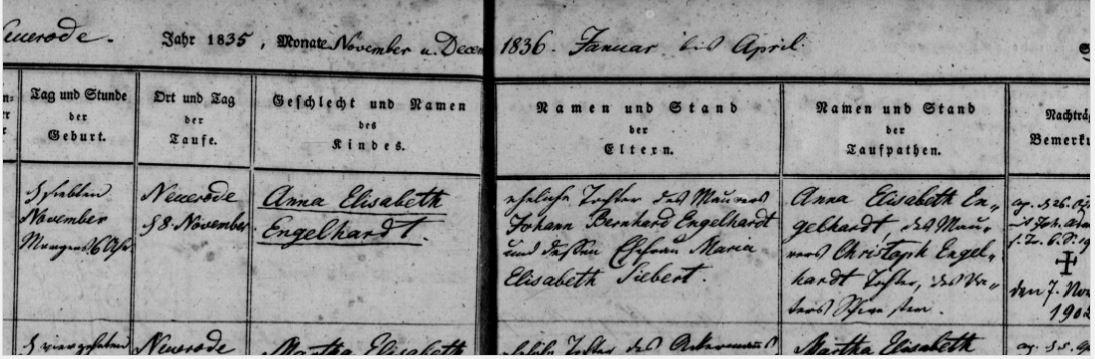 Neuerode. Jahr 1835, Monate November u. Decem
1836. Januar bis April.
Tag und Stunde
der
Geburt.
Ort und Tag
der
Taufe.
Geschlecht und Namen
des
Kindes.
Namen und Stand
der
Eltern.
Namen und Stand
der
Taufpathen.
Nachträ
Bemerku
November
Morgens 6 Uhr
Neuerode
November
Anna Elisabeth
Engelhardt.
eheliche Tochter des Maurers
Johann Bernhard Engelhardt
und dessen Ehefrau Maria
Elisabeth Siebert.
Anna Elisabeth En-
gelhardt, des Mau-
rers Christoph Engel-
hardt Tochter, des Va-
ters Schwester.
den 7. Nov
1902
Neuerode
Martha Elisabeth
ehel. Tochter des Ackermanns
Martha Elisabeth